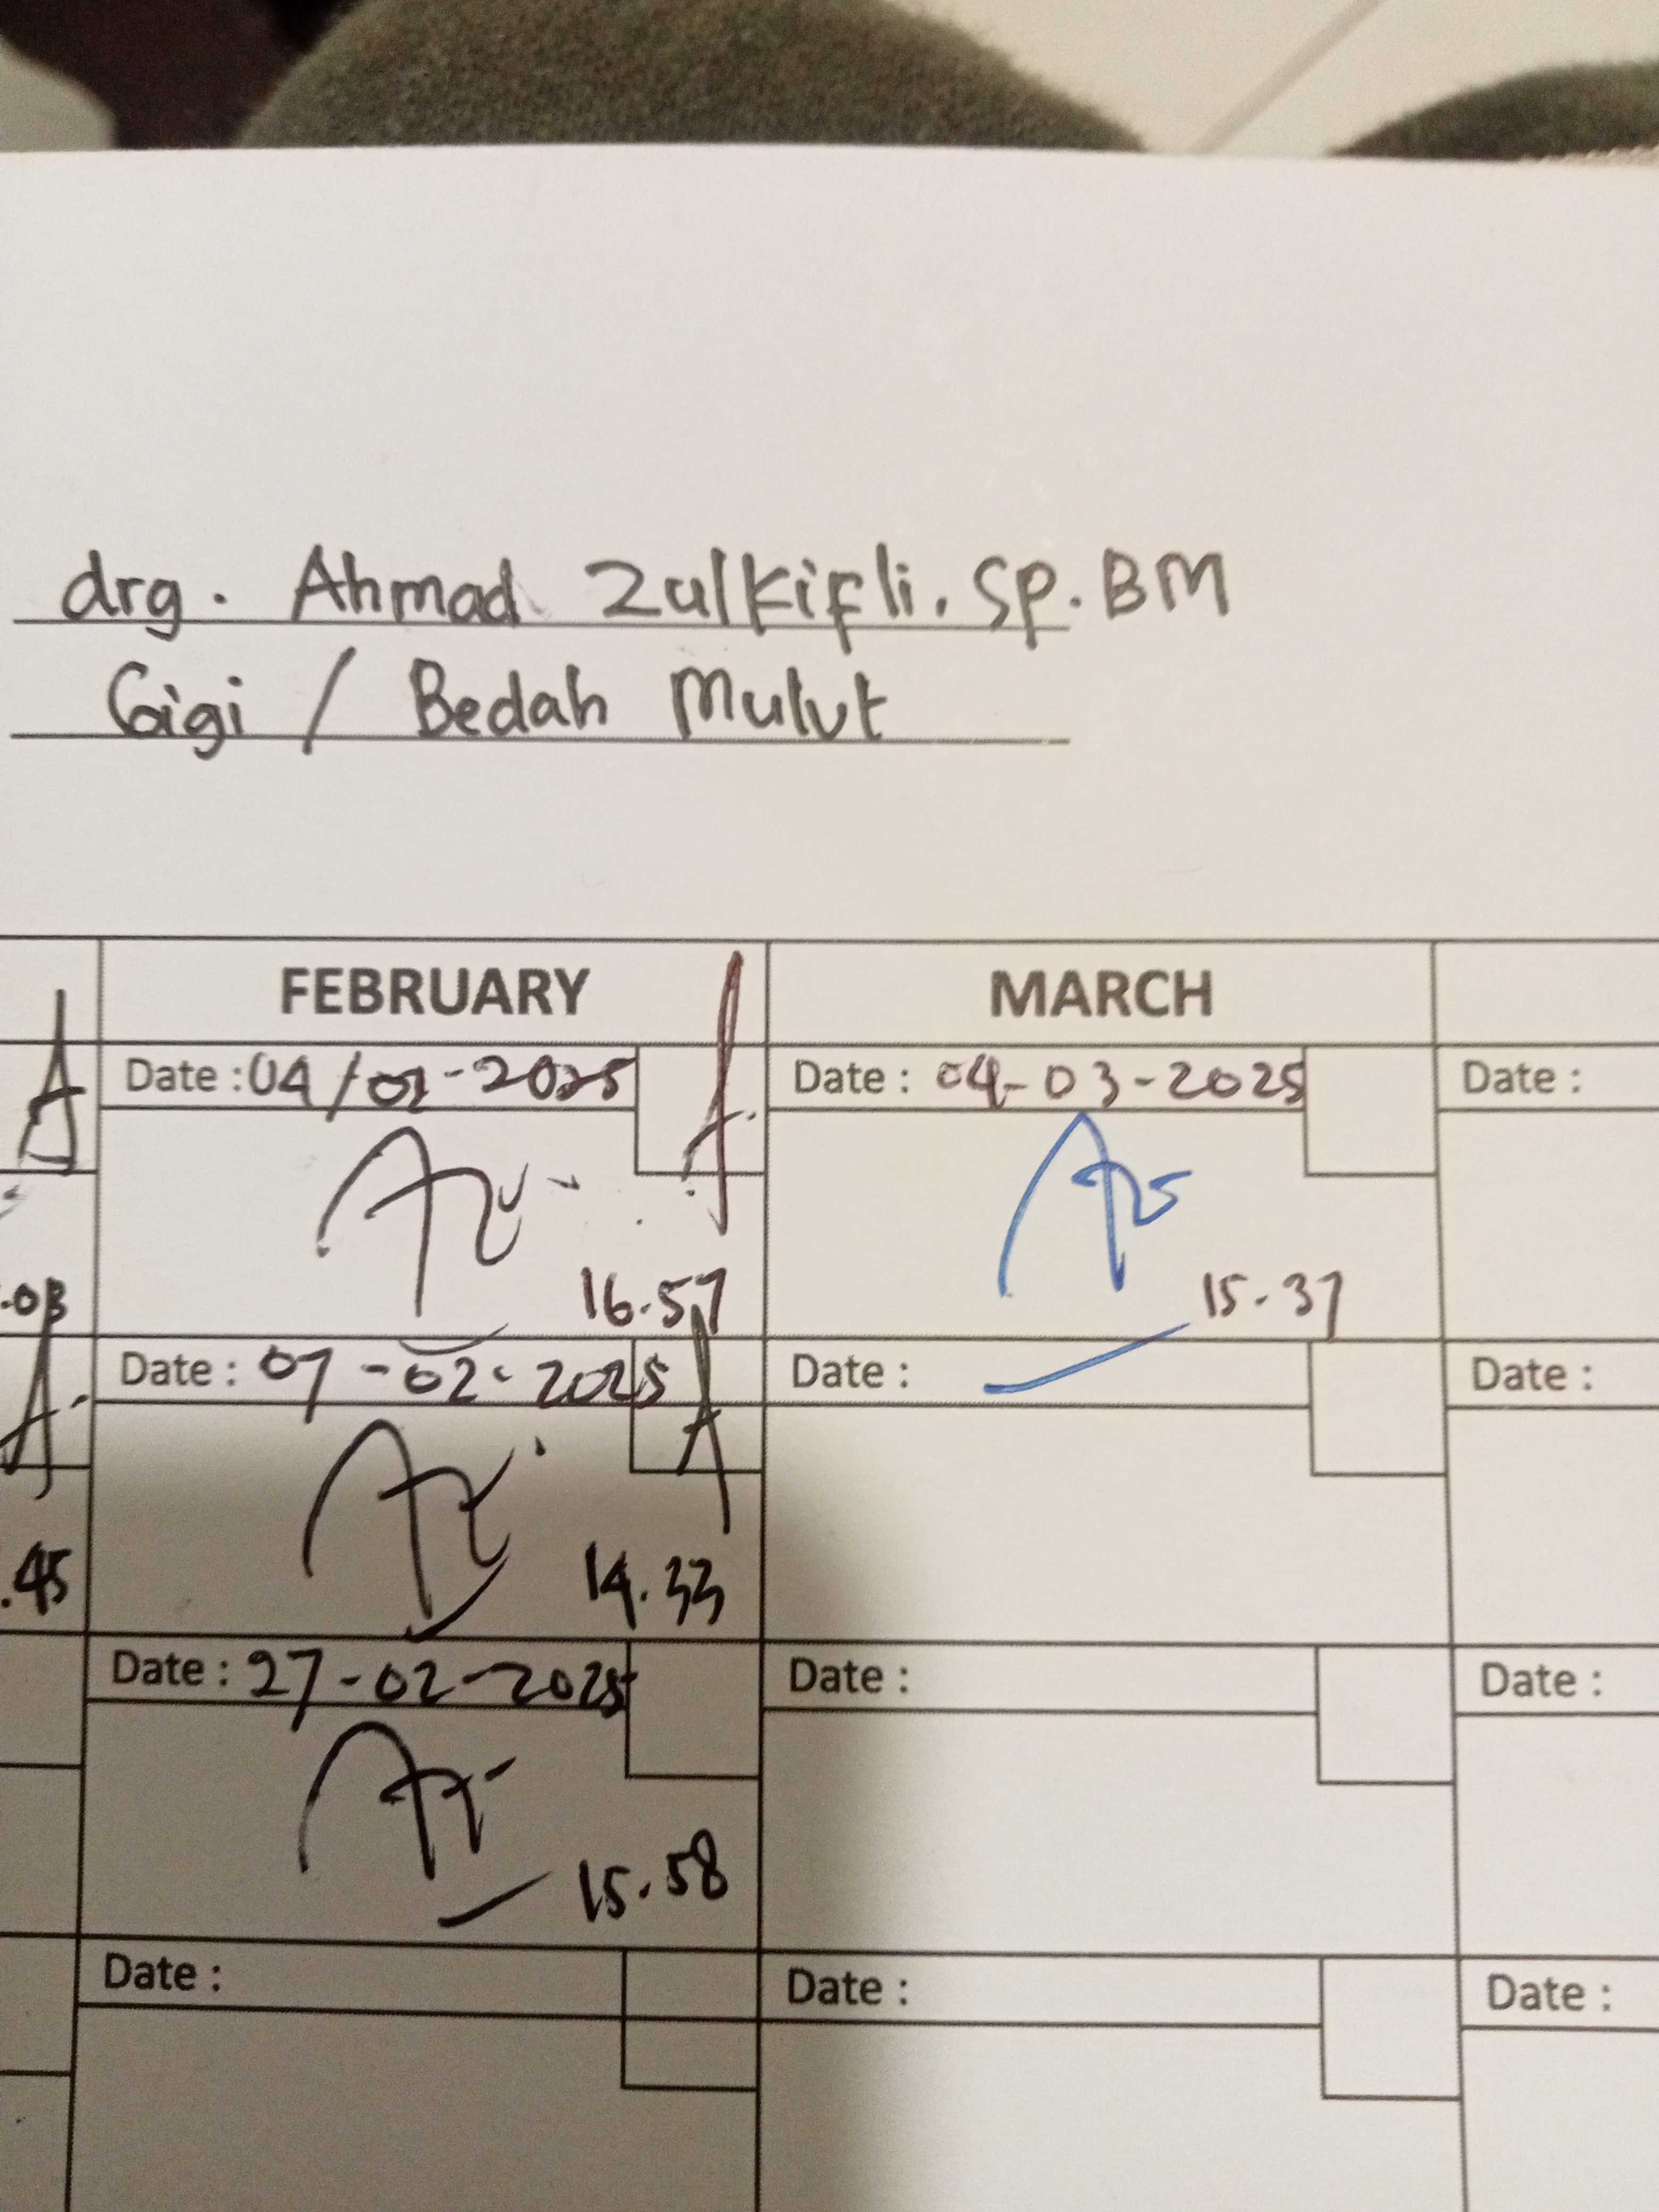 drg. Ahmad Zulkifli. Sp. BM
Gigi / Bedah Mulut
FEBRUARY MARCH
Date : 04/02-2025 Date : 04-03-2025 Date :
16.57 15.37
.03
Date : 07-02-2025 Date : Date :
.45 14.33
Date : 27-02-2025 Date : Date :
15.58
Date : Date : Date :